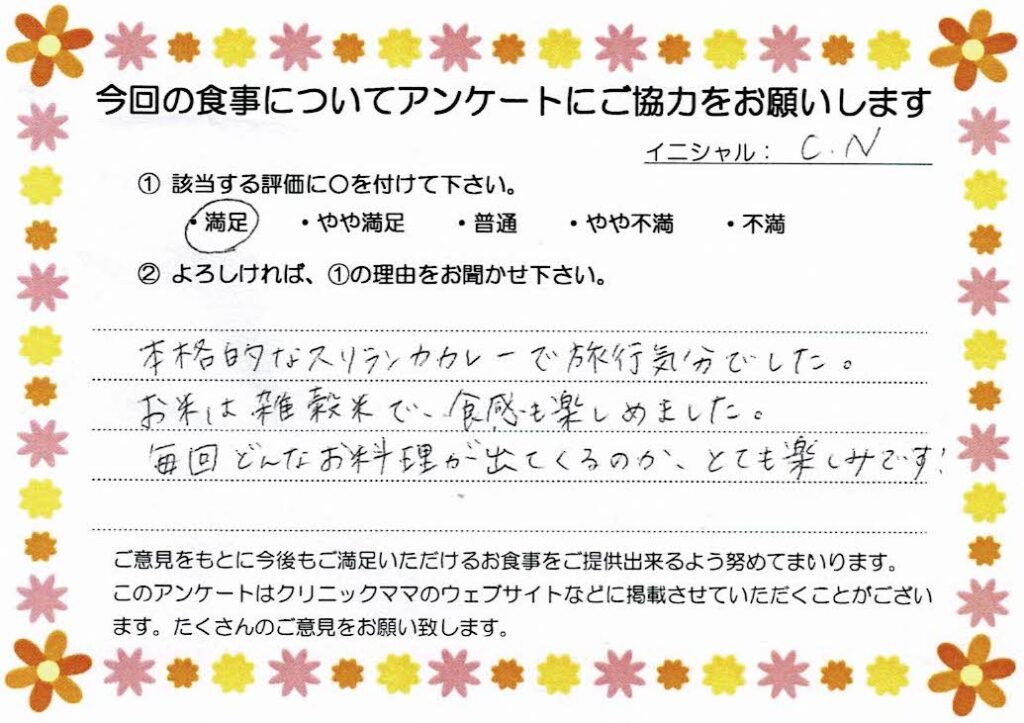 今回の食事についてアンケートにご協力をお願いします
イニシャル： C.N
① 該当する評価に〇を付けて下さい。
・満足 ・やや満足 ・普通 ・やや不満 ・不満
② よろしければ、①の理由をお聞かせ下さい。
本格的なスリランカカレーで旅行気分でした。
お米は雑穀米で、食感も楽しめました。
毎回どんなお料理が出てくるのか、とても楽しみです!
ご意見をもとに今後もご満足いただけるお食事をご提供出来るよう努めてまいります。
このアンケートはクリニックママのウェブサイトなどに掲載させていただくことがござい
ます。たくさんのご意見をお願い致します。